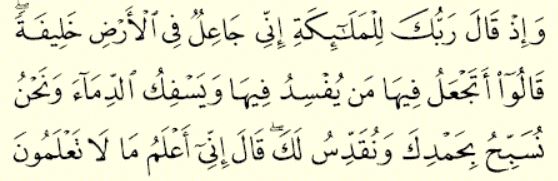 وَإِذْ قَالَ رَبُّكَ لِلْمَلَـٰٓئِكَةِ إِنِّى جَاعِلٌ فِى ٱلْأَرْضِ خَلِيفَةًۖ
قَالُوٓا۟ أَتَجْعَلُ فِيهَا مَن يُفْسِدُ فِيهَا وَيَسْفِكُ ٱلدِّمَآءَ وَنَحْنُ
نُسَبِّحُ بِحَمْدِكَ وَنُقَدِّسُ لَكَۖ قَالَ إِنِّىٓ أَعْلَمُ مَا لَا تَعْلَمُونَ